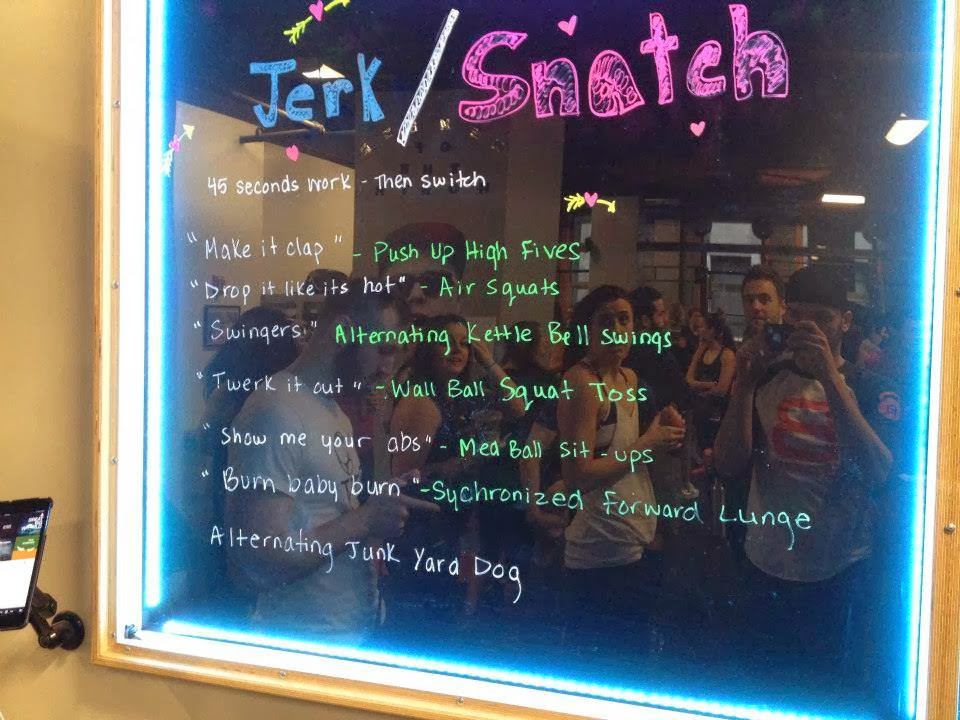 Jerk/Snatch
45 seconds work - Then switch
"Make it clap" - Push Up High Fives
"Drop it like its hot" - Air Squats
"Swingers" Alternating Kettle Bell swings
"Twerk it out" - Wall Ball Squat Toss
"Show me your abs" - Med Ball Sit-ups
"Burn baby burn" - Sychronized Forward Lunge
Alternating Junk Yard Dog